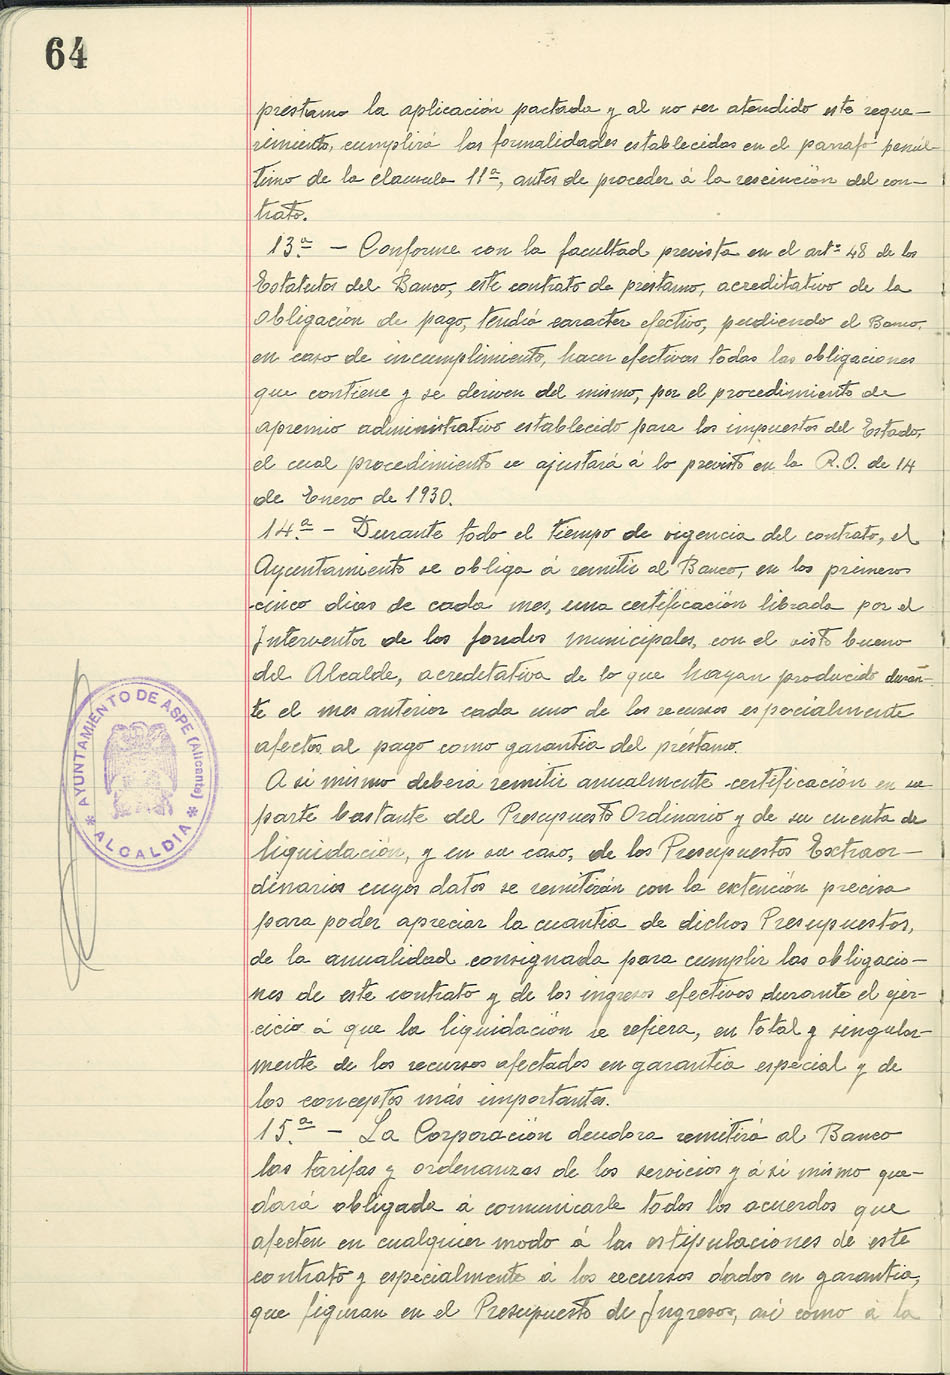 64
préstamo la aplicación pactada y al no ser atendido este reque-
rimiento, cumplirá las formalidades establecidas en el parrafo penúl-
timo de la clausula 11ª, antes de proceder á la rescinción del con-
trato.
13.ª - Conforme con la facultad prevista en el artº 48 de los
Estatutos del Banco, este contrato de prestamo, acreditativo de la
obligación de pago, tendrá caracter efectivo, pudiendo el Banco,
en caso de incumplimiento, hacer efectivas todas las obligaciones
que contiene y se deriven del mismo, por el procedimiento de
apremio administrativo establecido para los impuestos del Estado,
el cual procedimiento se ajustará á lo previsto en la R.O. de 14
de Enero de 1930.
14.ª - Durante todo el tiempo de vigencia del contrato, el
Ayuntamiento se obliga á remitir al Banco, en los primeros
cinco dias de cada mes, una certificación librada por el
Interventor de los fondos municipales, con el visto bueno
del Alcalde, acreditativa de lo que hayan producido duran-
te el mes anterior cada uno de los recursos especialmente
afectos al pago como garantia del préstamo.
A si mismo deberá remitir anualmente certificación en su
parte bastante del Presupuesto Ordinario y de su cuenta de
liquidación, y en su caso, de los Presupuestos Extraor-
dinarios cuyos datos se remitirán con la extención precisa
para poder apreciar la cuantia de dichos Presupuestos,
de la anualidad consignada para cumplir las obligacio-
nes de este contrato y de los ingresos efectivos durante el ejer-
cicio á que la liquidación se refiera, en total y singular-
mente de los recursos afectados en garantia especial y de
los conceptos más importantes.
15.ª - La Corporación deudora remitirá al Banco
las tarifas y ordenanzas de los servicios y á si mismo que-
dará obligada á comunicarle todos los acuerdos que
afecten en cualquier modo á las estipulaciones de este
contrato y especialmente á los recursos dados en garantia,
que figuran en el Presupuesto de Ingresos, asi como á la
AYUNTAMIENTO DE ASPE (Alicante)
* ALCALDIA *